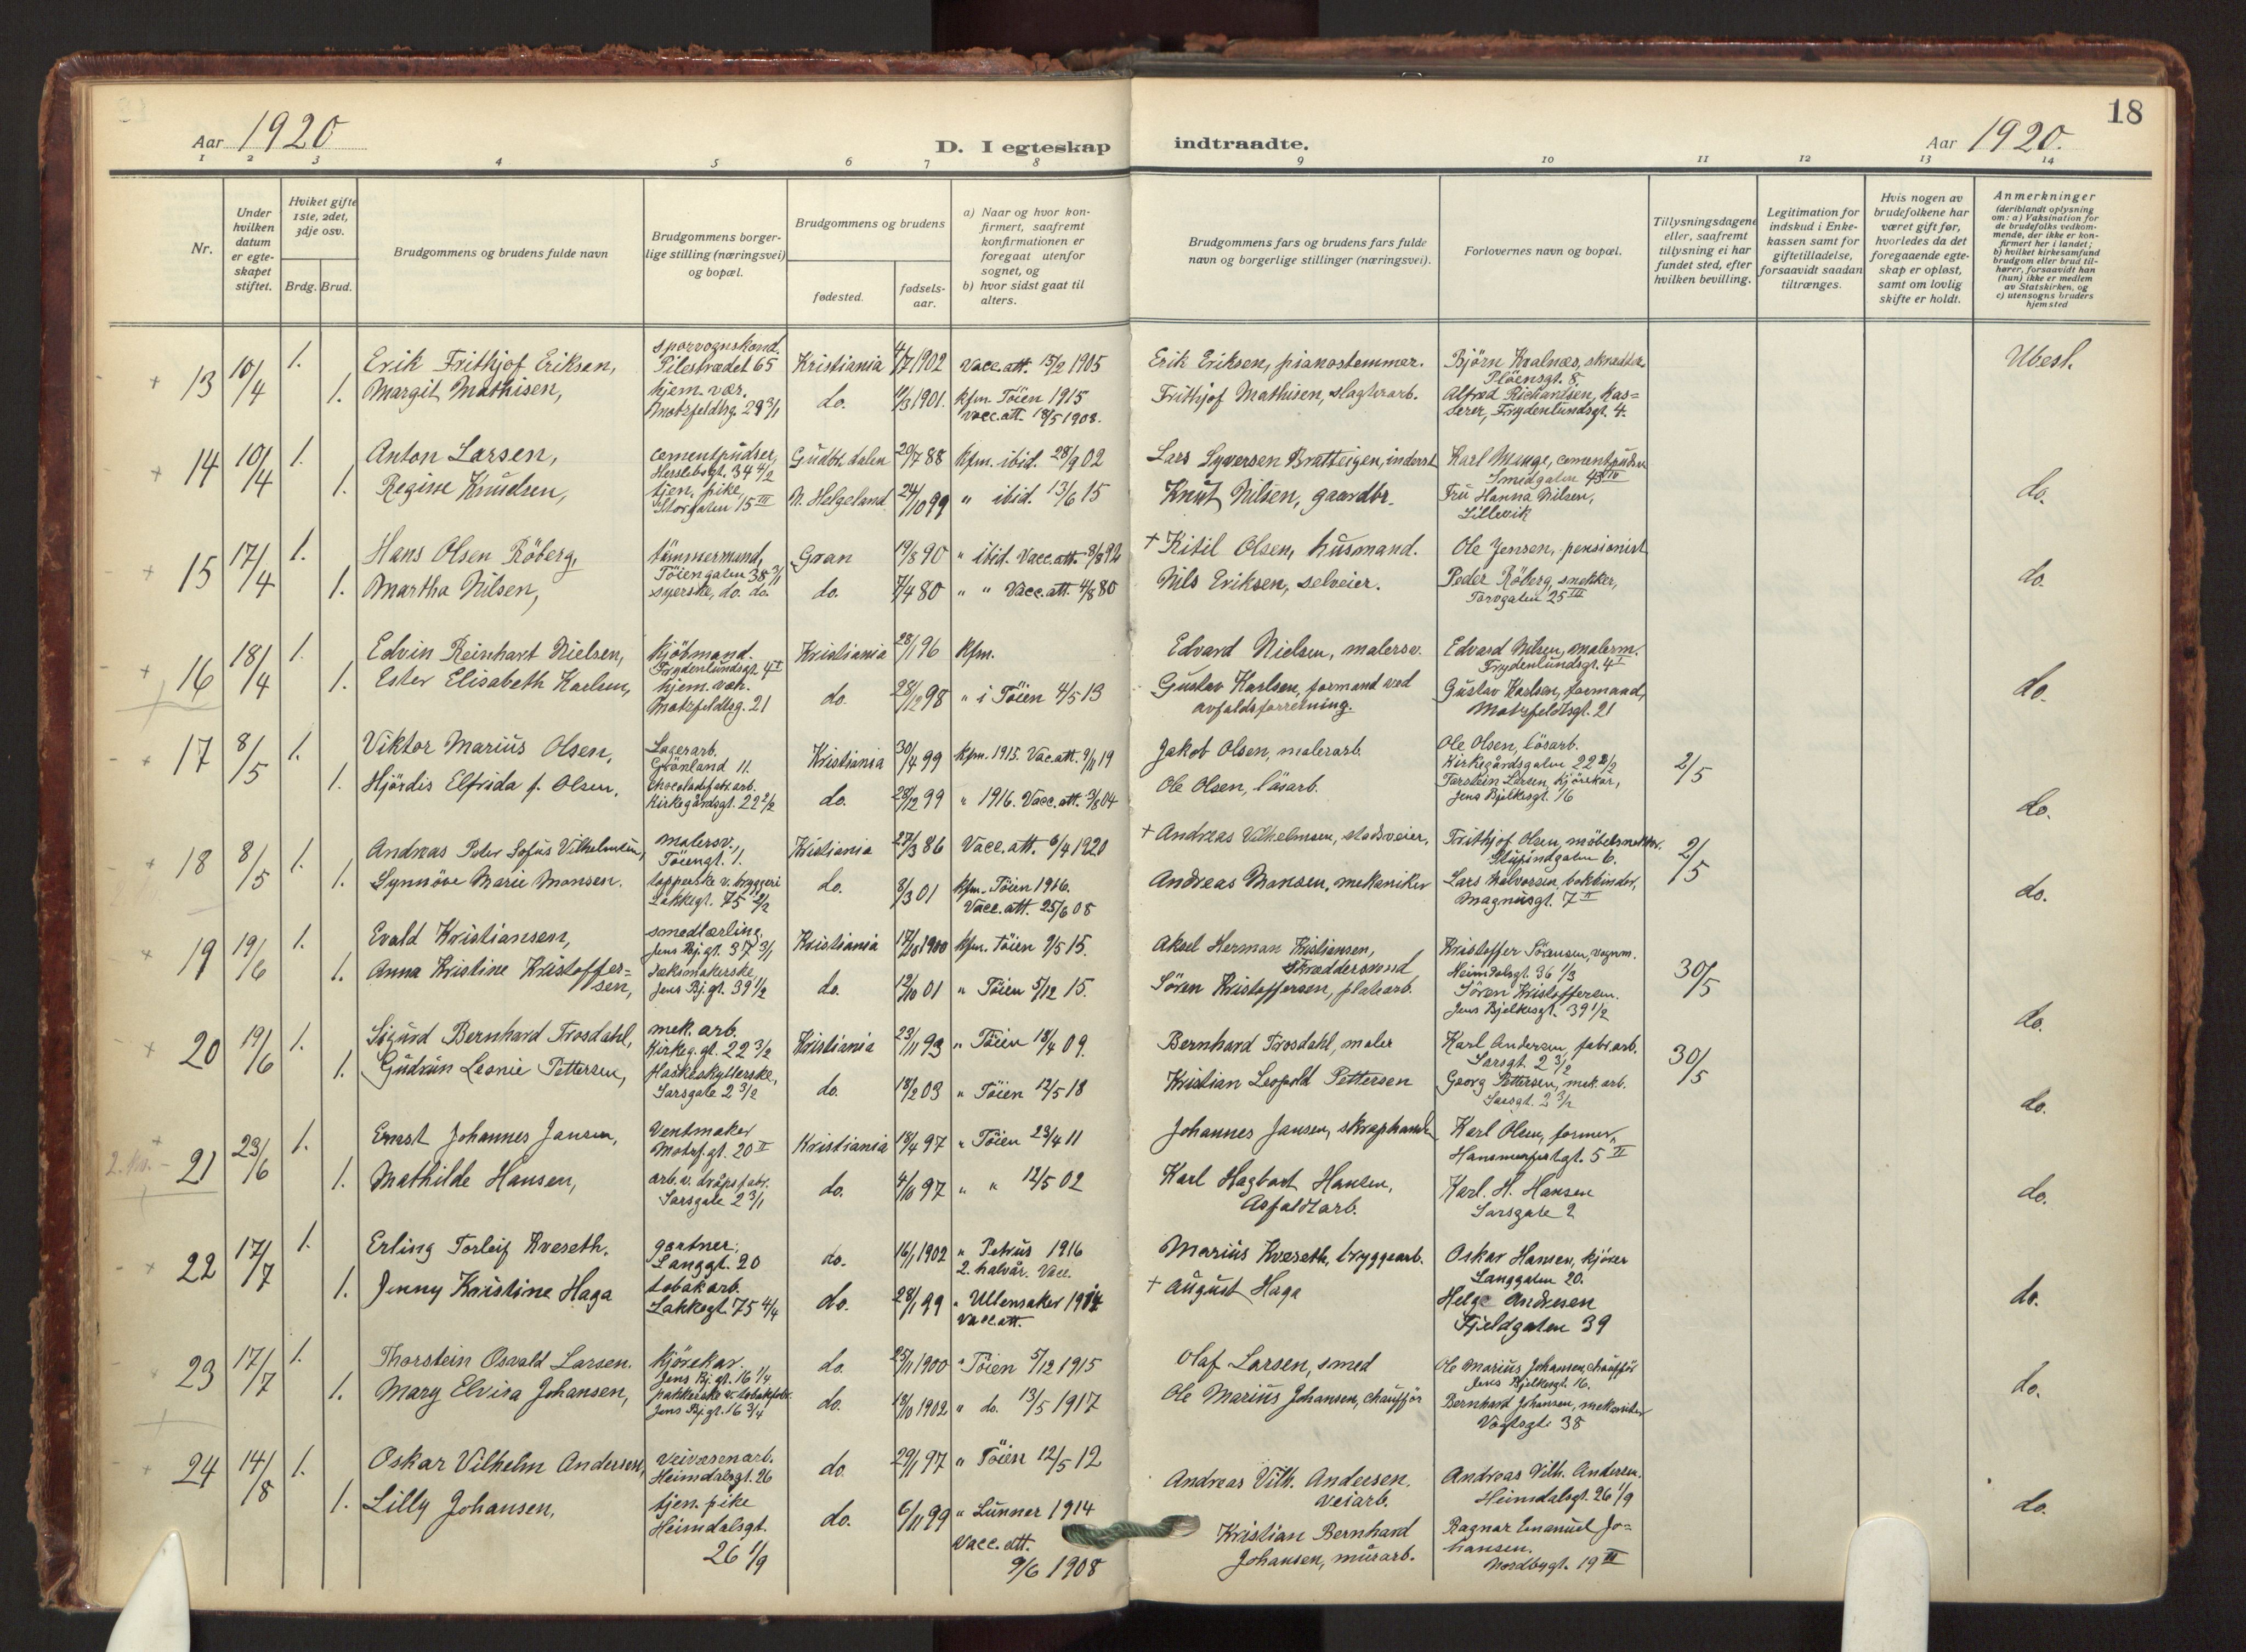 18
Aar 1920
D. I egteskap indtraadte.
Aar 1920.
1 2 3 4 5 6 7 8 9 10 11 12 13 14
Nr.
Under hvilken datum er egteskapet stiftet.
Hviket gifte 1ste, 2det, 3dje osv.
Brdg. Brud.
Brudgommens og brudens fulde navn
Brudgommens borgerlige stilling (næringsvei) og bopæl.
Brudgommens og brudens
fødested.
fødsels-aar.
a) Naar og hvor konfirmert, saafremt konfirmationen er foregaat utenfor sognet, og
b) hvor sidst gaat til alters.
Brudgommens fars og brudens fars fulde navn og borgerlige stillinger (næringsvei).
Forlovernes navn og bopæl.
Tillysningsdagene eller, saafremt tillysning ei har fundet sted, efter hvilken bevilling.
Legitimation for indskud i Enkekassen samt for giftetilladelse, forsaavidt saadan tiltrænges.
Hvis nogen av brudefolkene har været gift før, hvorledes da det foregaaende egteskap er opløst, samt om lovlig skifte er holdt.
Anmerkninger
(deriblandt oplysning om: a) Vaksination for de brudefolks vedkommende, der ikke er konfirmert her i landet; b) hvilket kirkesamfund brudgom eller brud tilhører, forsaavidt han (hun) ikke er medlem av Statskirken, og c) utensogns bruders hjemsted
13 10/4 1. Erik Frithjof Eriksen, sporvognskond. Pilestrædet 65 Kristiania 4/7 1902 Vacc. att. 15/2 1905 Erik Eriksen, pianostemmer. Björn Kvalnæs, skrædder, Plöensgt. 8. Ubest.
1. Margit Mathisen, hjem. vær. Motzfeldtsg. 29 3/1 do. 1901. Kfm. Töien 1915 Vacc. att. 18/5 1908. Frithjof Mathisen, slagterarb. Alfred Richardsen, kasserer, Frydenlundsgt. 4.
14 10/4 1. Anton Larsen, cementpudser, Herslebsgt. 34 4/2 Gudbr. dalen 20/7 88 Kfm. ibid. 28/9 02 Lars Syversen Bratteigen, inderst Karl Mange, cementpudser Smedgaten 43 IV
1. Regine Knudsen, tjen. pike, Storgaten 15 III N. Helgeland 24/10 99 " ibid. 13/6 15 Knut Nilsen, gaardbr. Fru Hanna Nilsen, Lillevik do.
15 17/4 1. Hans Olsen Röberg, tömmermand, Töiengaten 38 3/1 Gran 19/8 90 " ibid. Vacc. att. 8/8 92 + Kitil Olsen, husmand. Ole Jensen, pensionist
1. Martha Nilsen, syerske, do. do. do. 7/4 80 " " Vacc. att. 4/8 80 Nils Eriksen, selveier. Peder Röberg, snekker, Torvgaten 25 III do.
16 18/4 1. Edvin Reinhart Nielsen, kjöbmand. Frydenlundsgt. 4 I Kristiania 28/1 96 Kfm. Edvard Nielsen, malersv. Edvard Nilsen, malerm. Frydenlundsgt. 4 I
1. Ester Elisabeth Karlsen, hjem. vær. Motzfeldtsg. 21 do. 28/12 98 " i Töien 4/5 13 Gustav Karlsen, formand ved avfaldsforretning. Gustav Karlsen, formand, Motzfeldtsgt. 21 do.
17 8/5 1. Viktor Marius Olsen, Lagerarb. Grönland 11. Kristiania 30/4 99 Kfm. 1915. Vac. att. 9/11 19 Jakob Olsen, malerarb. Ole Olsen, lösarb. Kirkegårdsgaten 22 2/2 2/5
1. Hjördis Elfrida f. Olsen, chocoladefabr. arb. Kirkegårdsgt. 22 2/2 do. 28/12 99 " 1916. Vacc. att. 3/8 04 Ole Olsen, lösarb. Torstein Larsen, kjörekar, Jens Bjelkesgt. 16 do.
18 8/5 1. Andreas Peter Sofus Vilhelmsen, malersv., Töiengt. 1. Kristiania 27/3 86 Vacc. att. 6/4 1920 + Andreas Vilhelmsen, stadsveier, Frithjof Olsen, möbelsnekker. Stupindgaten 6. 2/5
1. Synnöve Marie Monsen. topperske v. bryggeri Lakkegt. 75 2/2 do. 8/3 01 Kfm. Töien 1916. Vacc. att. 25/6 08 Andreas Monsen, mekaniker Lars Halvorsen, bokbinder, Magnusgt. 7 II do.
19 19/6 1. Evald Kristiansen, smedlærling, Jens Bj. gt. 37 3/1 Kristiania 17/10 1900 Kfm. Töien 9/5 15. Aksel Herman Kristiansen, skræddersvend Kristoffer Sörensen, vognm. Heimdalsgt. 36 1/3 30/5
1. Anna Kristine Kristoffersen, sæksmakerske, Jens Bj. gt. 39 1/2 do. 12/10 01 " Töien 5/12 15. Sören Kristoffersen, platearb. Sören Kristoffersen. Jens Bjelkesgt. 39 1/2 do.
20 19/6 1. Sigurd Bernhard Trosdahl, mek. arb. Kirkeg. gt. 22 3/2 Kristiania 23/11 93 " Töien 18/4 09. Bernhard Trosdahl, maler Karl Andersen, fabr. arb. Sarsgt. 2 3/2 30/5
1. Gudrun Leonie Pettersen, flaskeskyllerske, Sarsgate 2 3/2 do. 18/2 03 " Töien 12/5 18 Kristian Leopold Pettersen Georg Pettersen, mek. arb. Sarsgt. 2 3/2 do.
2. 21 23/6 1. Ernst Johannes Jansen, Ventmaker Motzf. gt. 20 II Kristiania 18/4 97 " Töien 23/4 11 Johannes Jansen, skraphandl. Karl Olsen, former, Hammerfestgt. 5 II
1. Mathilde Hansen, arb. v. dropsfabr. Sarsgate 2 3/1 do. 4/10 97 " " 12/5 02 Karl Hagbart Hansen, Asfaldtarb. Karl. H. Hansen Sarsgate 2 do.
22 17/7 1. Erling Torleif Kveseth. gartner, Langgt. 20 do. 16/1 1902 " Petrus 1916 2. halvår. Vacc. Marius Kveseth, bryggearb. Oskar Hansen, kjörer Langgaten 20.
1. Jenny Kristine Haga tobakarb. Lakkegt. 75 4/4 do. 28/1 99 " Ullensaker 1914 Vacc. att. + August Haga Helge Andresen Fjeldgaten 39 do.
23 17/7 1. Thorstein Osvald Larsen. kjörekar. Jens Bj. gt. 16 1/4 do. 25/11 1900 " Töien 5/12 1915 Olaf Larsen, smed Ole Marius Johansen, chaufför Jens Bjelkesgt. 16.
1. Mary Elvira Johansen, pakkerske v. tobakfabr. Jens Bj. gt. 16 3/4 do. 18/10 1902 " do. 13/5 1917 Ole Marius Johansen, chauffør Bernhard Johansen, mekaniker Vogtsgt. 38 do.
24 14/8 1. Oskar Vilhelm Andersen, veivæsenarb. Heimdalsgt. 26 do. 29/1 97 " Töien 12/5 12 Andreas Vilh. Andersen. veiarb. Andreas Vilh. Andersen. Heimdalsgt. 26 1/9
1. Lilly Johansen, tjen. pike Heimdalsgt. 26 1/9 do. 6/11 99 " Lunner 1914 Vacc. att. 9/6 1908 Kristian Bernhard Johansen, murarb. Ragnar Emanuel Johansen. Nordbygt. 19 III do.